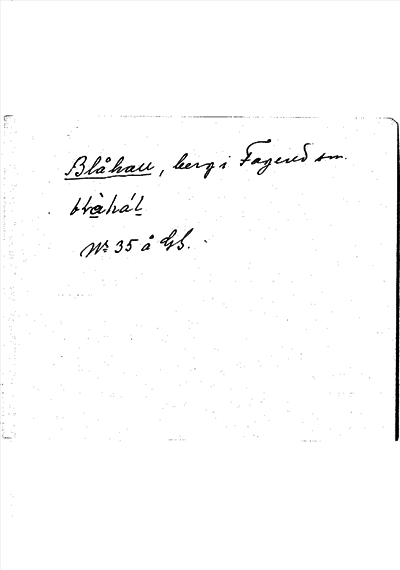 Blåhall, berg i Fagerud sm.
blåhál
Nr 35 å GS.